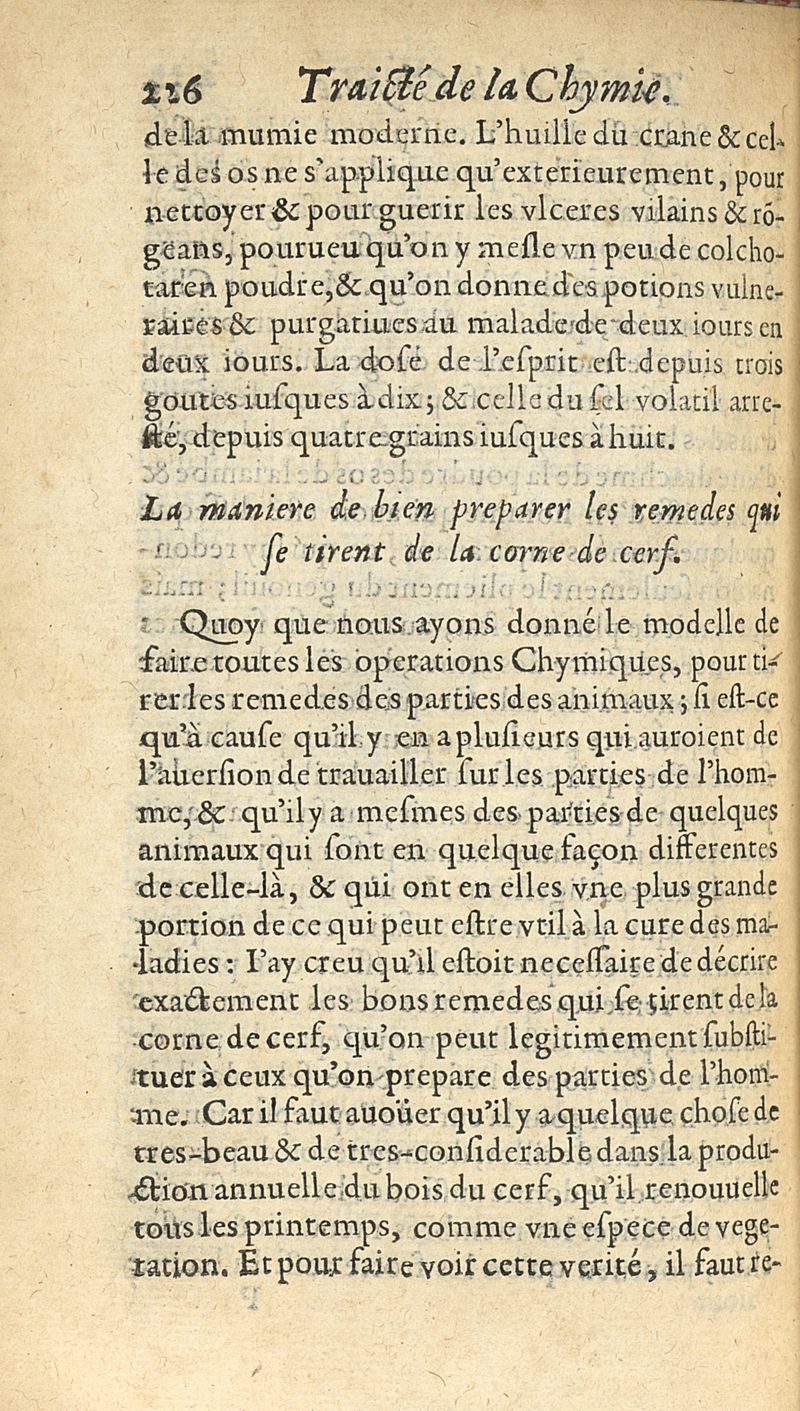 226 Traicté de la Chymie.
de la mumie moderne. L'huille du crane & cel-
le des os ne s'applique qu'exterieurement, pour
nettoyer & pour guerir les vlceres vilains & rõ-
geans, pourueu qu'on y mesle vn peu de colcho-
tar en poudre, & qu'on donne des potions vulne-
raires & purgatiues au malade de deux iours en
deux iours. La dose de l'esprit est depuis trois
goutes iusques à dix; & celle du sel volatil arre-
sté, depuis quatre grains iusques à huit.
La maniere de bien preparer les remedes qui
se tirent de la corne de cerf.
Quoy que nous ayons donné le modelle de
faire toutes les operations Chymiques, pour ti-
rer les remedes des parties des animaux; si est-ce
qu'à cause qu'il y en a plusieurs qui auroient de
l'auersion de trauailler sur les parties de l'hom-
me, & qu'il y a mesmes des parties de quelques
animaux qui sont en quelque façon differentes
de celle-là, & qui ont en elles vne plus grande
portion de ce qui peut estre vtil à la cure des ma-
ladies: I'ay creu qu'il estoit necessaire de décrire
exactement les bons remedes qui se tirent de la
corne de cerf, qu'on peut legitimement substi-
tuer à ceux qu'on prepare des parties de l'hom-
me. Car il faut auoüer qu'il y a quelque chose de
tres-beau & de tres-considerable dans la produ-
ction annuelle du bois du cerf, qu'il renouuelle
tous les printemps, comme vne espece de vege-
tation. Et pour faire voir cette verité, il faut re-